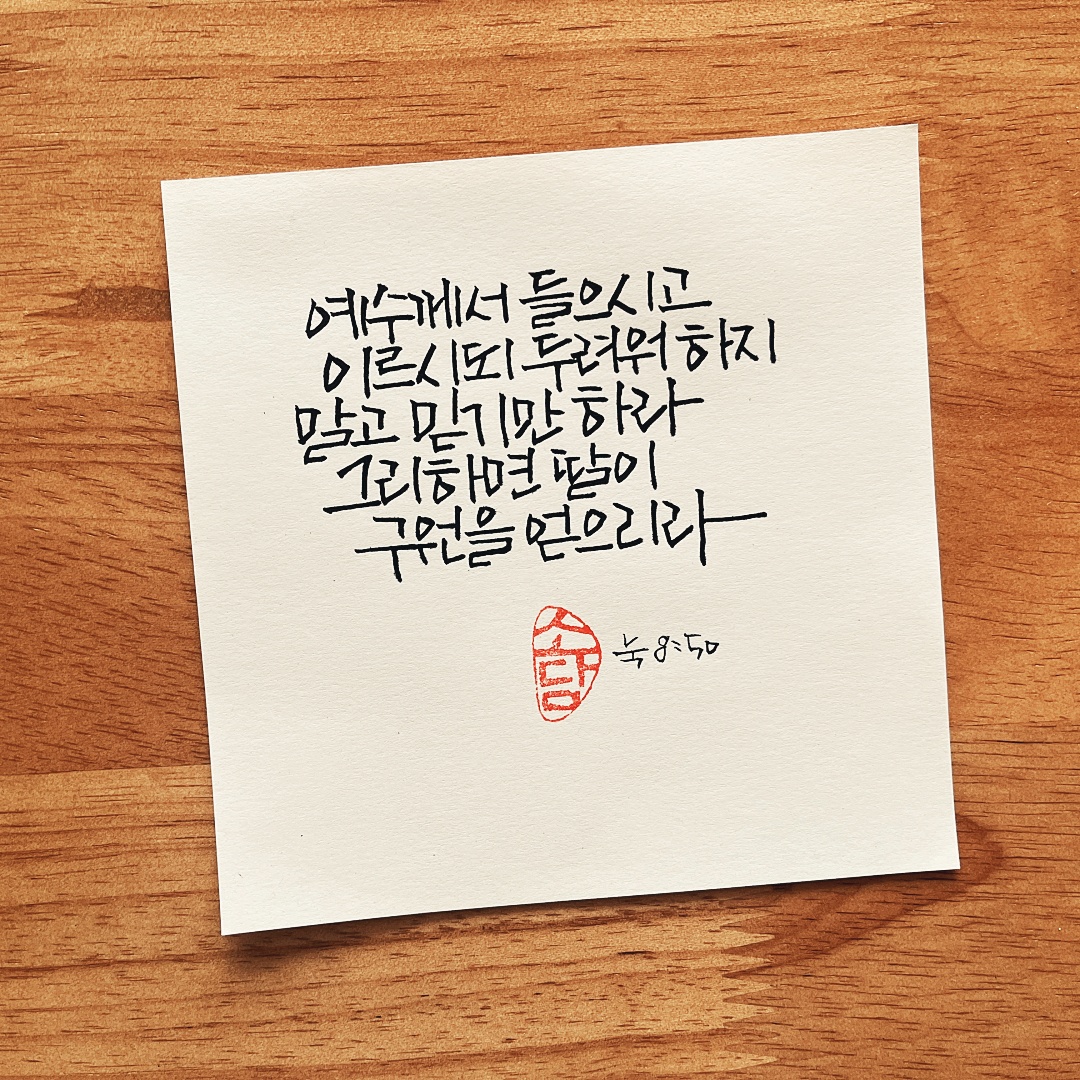 예수께서 들으시고
이르시되 두려워 하지
말고 믿기만 하라
그리하면 딸이
구원을 얻으리라
소담
눅 8:50